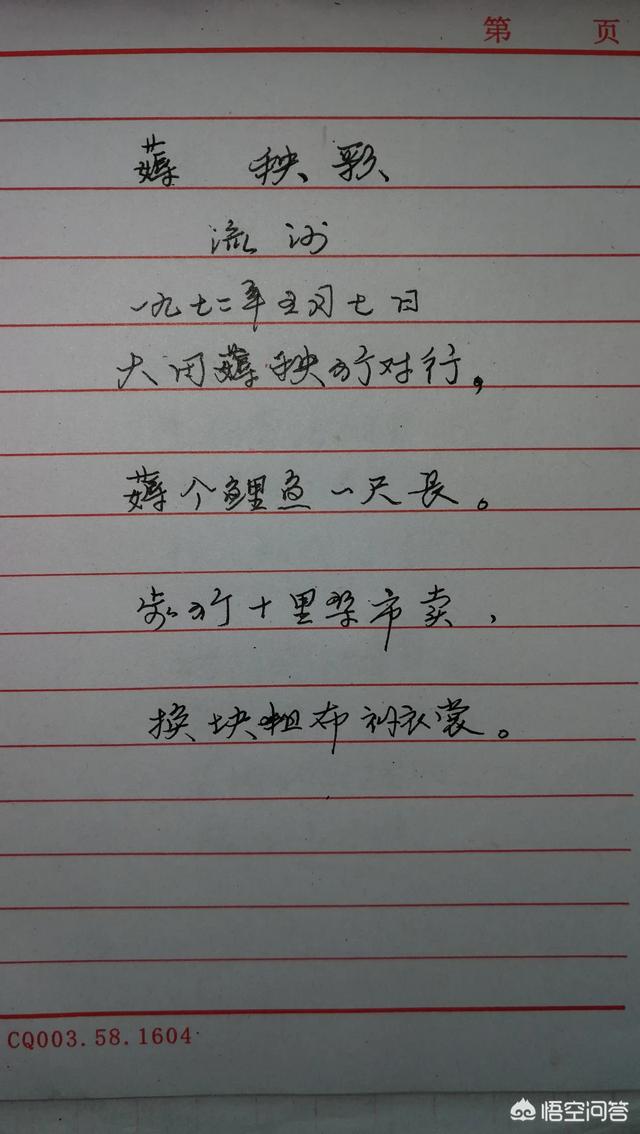 第 页
薅 秧歌
流沙
一九七二年五月七日
大田薅秧行对行，
薅个鲤鱼一尺长。
十里 市卖，
换块粗布衲衣裳。
CQ003.58.1604
悟空问答